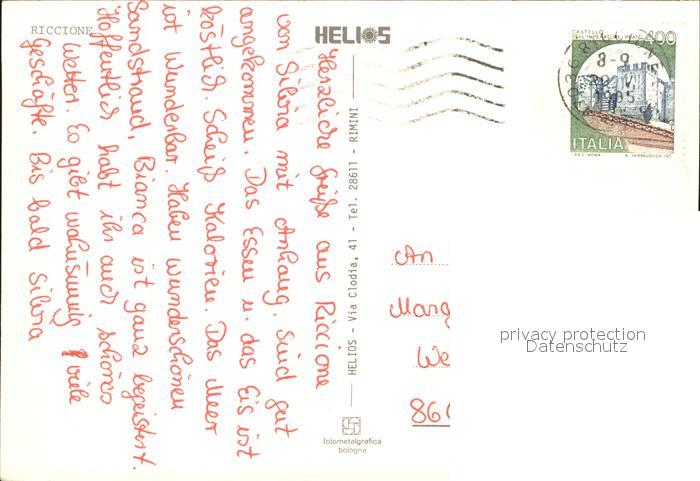 RICCIONE
HELIOS
Herzliche Grüße aus Riccione
von Silvia mit Anhang. Sind gut
angekommen. Das Essen u. das Eis ist
köstlich. Scheiß Kalorien. Das Meer
ist wunderbar. Haben wunderschönen
Sandstrand, Bianca ist ganz begeistert.
Hoffentlich habt ihr auch schönes
Wetter. Es gibt wahnsinnig viele
Geschäfte. Bis bald Silvia
HELIOS - Via Clodia, 41 - Tel. 28611 - RIMINI
fotometalgrafica
bologna
CASTELLO
DELL'IMPERATORE - PRATO
400
8-9
1985
ITALIA
I.P.Z.S. ROMA
An
Marg
We
86
privacy protection
Datenschutz